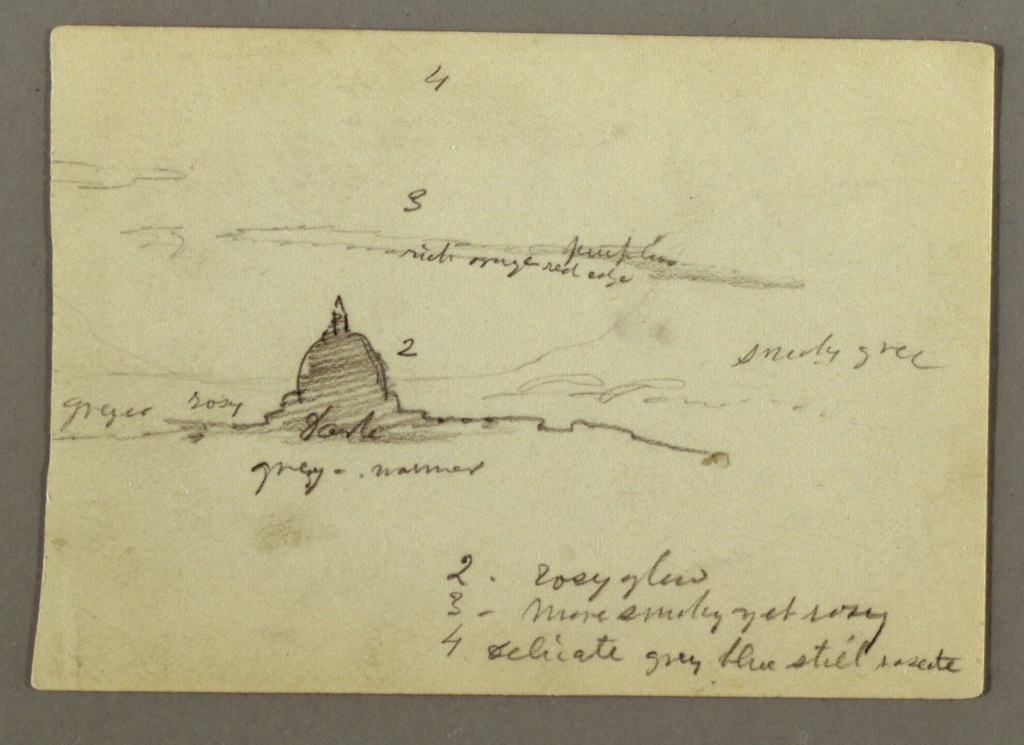 4
3
purplish
rich orange red edge
2
smoky grey
rosy
Dark
grey - . warmer
2 . rosy glow
3 - more smoky yet rosy
4 delicate grey blue still roseate